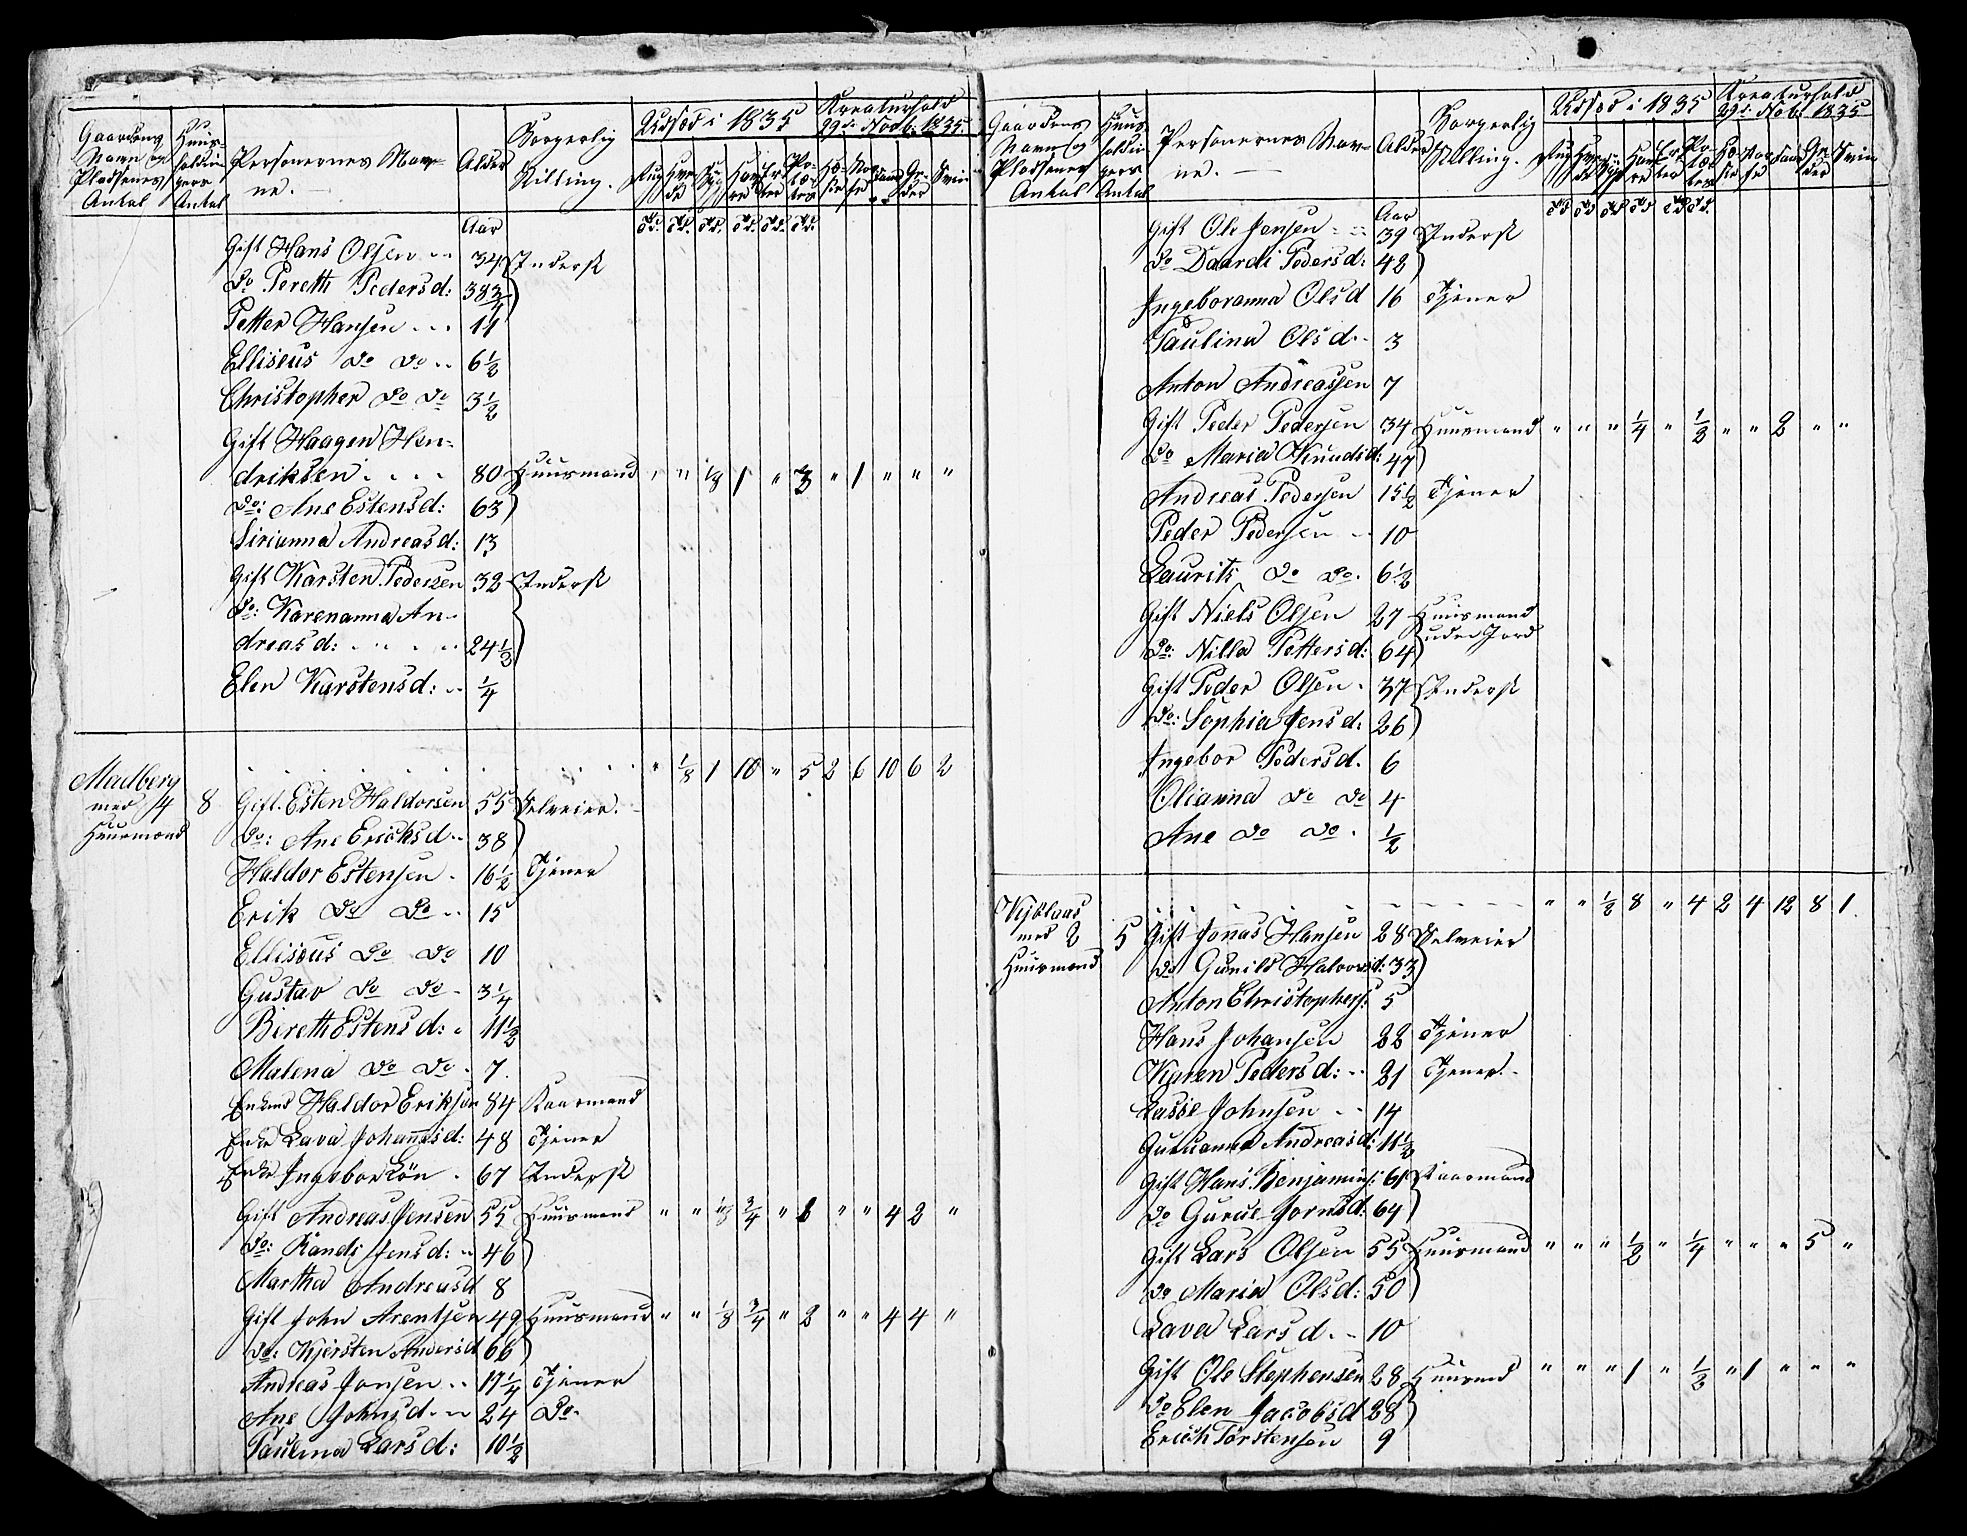 Gaardens Navn og Pladsenes Antal | Huus-holdningers Antal | Personernes Navne. | Alder | Borgerlig Stilling. | Udsæd i 1835 | Kreaturhold 29de Novb. 1835.
Rug | Hvede | Byg | Havre | Erter | Poteter | Heste | Stor Fæ | Faar | Geder | Sviin
Aar | Td. | Td. | Td. | Td. | Td. | Td.
Gift Hans Olsen | 34 | Inderst
Do Pereth Pedersd: | 38 3/4
Petter Hansen | 11
Elliseus Do Do | 6 1/2
Christopher Do Do | 3 1/2
Gift Haagen Hen-
driksen | 80 | Huusmand | " | " | 1/8 | 1 | " | 3 | " | 1 | " | " | "
Do: Ane Estensd: | 63
Sirianna Andreasd: | 13
Gift Karsten Pedersen | 32 | Inderst
Do: Karenanna An-
dreasd: | 24 1/2
Elen Karstensd: | 1/4
" | 1/8 | 1 | 10 | " | 5 | 2 | 6 | 10 | 6 | 2
Madberg
med 4 | 8 | Gift Esten Haldorsen | 55 | Selveier
Huusmænd | Do: Ane Ericksd | 38
Haldor Estensen | 16 1/2 | Tjener
Erik Do Do | 15
Elliseus Do Do | 10
Gustav Do Do | 3 1/4
Bereth Estensd: | 11 1/2
Malena Do Do | 7
Enkmd Haldor Eriksen | 84 | Kaarmand
Enke Lava Johannisd: | 48 | Tjener
Enke Ingebor Lön | 67 | Inderst
Gift Andreas Jensen | 55 | Huusmand | " | " | 1/8 | 3/4 | " | 2 | " | " | 4 | 2 | "
Do: Randi Jensd: | 46
Martha Andreasd | 8
Gift John Arentsen | 49 | Huusmand | " | " | 1/8 | 3/4 | " | 2 | " | " | 4 | 4 | "
Do: Kjersten Andersd | 66
Andreas Jonsen | 17 1/4 | Tjener
Ane Johnsd | 24 | Do
Paulina Larsd: | 10 1/2
Gaardens Navn og Pladsenes Antal | Huus-holdningers Antal | Personernes Navne. | Alder | Borgerlig Stilling. | Udsæd i 1835 | Kreaturhold 29de Nobr 1835
Rug | Hvede | Byg | Havre | Erter | Poteter | Heste | Stor Fæ | Faar | Geder | Sviin
Aar | Td | Td | Td | Td | Td | Td.
Gift Ole Jensen | 39 | Inderst
Do Daardi Pedersd: | 42
Ingeboranna Olsd | 16 | Tjener
Paulina Olsd | 3
Anton Andreassen | 7
Gift Peder Pedersen | 34 | Huusmand | " | " | " | 1/4 | " | 1/2 | " | " | 2 | " | "
Do Maria Knudsd: | 47
Andreas Pedersen | 15 1/2 | Tjener
Peder Pedersen | 10
Laurits Do Do | 6 1/2
Gift Niels Olsen | 27 | Huusmand
uden Jord
Do: Nilla Pettersd: | 64
Gift Peder Olsen | 37 | Inderst
Do: Sophia Jensd: | 26
Ingebor Pedersd. | 6
Olianna Do Do | 4
Ane Do Do | 1/2
" | " | 1/2 | 8 | " | 4 | 2 | 4 | 12 | 8 | 1
med 2 | 5 | Gift Jonas Hansen | 28 | Selveier
Huusmænd | Do Gunild Halvorsd: | 33
Anton Christophers: | 5
Hans Johansen | 22 | Tjener
Karen Pedersd: | 21 | Tjener
Lasse Johnsen | 14
Guruanna Andreasd: | 11 1/2
Gift Hans Benjamins: | 61 | Kaarmand
Do Gurue Jornsd: | 64
Gift Lars Olsen | 55 | Huusmand | " | " | " | 1/2 | " | 1/4 | " | " | " | 5 | "
Do Maria Olsd: | 50
Lava Larsd. | 10
Gift Ole Stephensen | 28 | Huusmd | " | " | " | 1 | " | 1/2 | " | 1 | " | " | "
Do Elen Jacobsd | 28
Erich Torstensen | 9